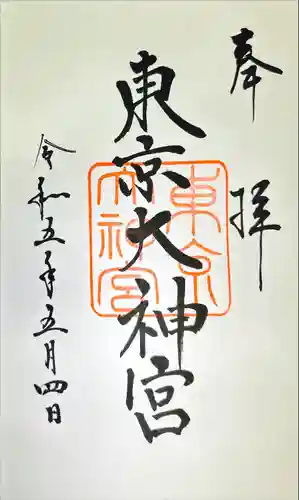 奉拝
東京大神宮
東京大神宮
令和五年五月四日